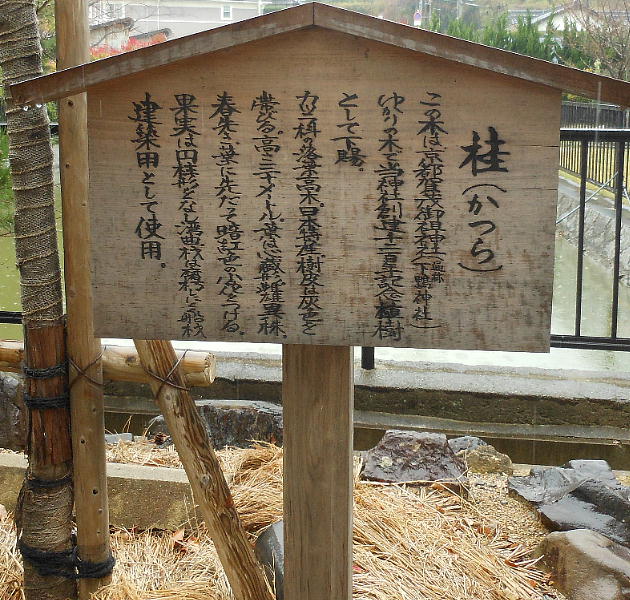 桂（かつら）
この木は京都賀茂御祖神社（通称下鴨神社）
ゆかりの木で当神社創建千二百年記念植樹
として下賜。
カツラ科の落葉高木。日本特産。樹皮は灰色を
帯びる。高さ三十メートル。葉は心臓形。雌雄異株。
春早く葉に先だって暗紅色の小花をつける。
果実は円柱形をなし湾曲。材は
建築用として使用。